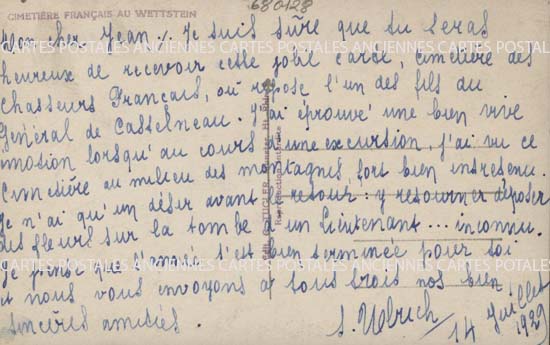 680128
CIMETIÈRE FRANÇAIS AU WETTSTEIN
Mon cher Jean, Je suis sûre que tu seras
CARTES POSTALES ANCIENNES CARTES POSTALES ANCIENNES CARTES POSTALES
heureux de recevoir cette joli carte, cimetière des
Chasseurs Français, où repose l'un des fils du
Général de Casselneau. J'ai éprouvé une bien vive
émotion lorsqu'au cours d'une excursion, j'ai vu ce
Cimetière au milieu des montagnes, fort bien entretenu.
Je n'ai qu'un désir avant le retour: y retourner déposer
des fleurs sur la tombe d'un lieutenant... inconnu.
Je pense que l'année s'est bien terminée pour toi
et nous vous envoyons à tous trois nos bien
sincères amitiés.
S. Ulrich
14 Juillet
1929